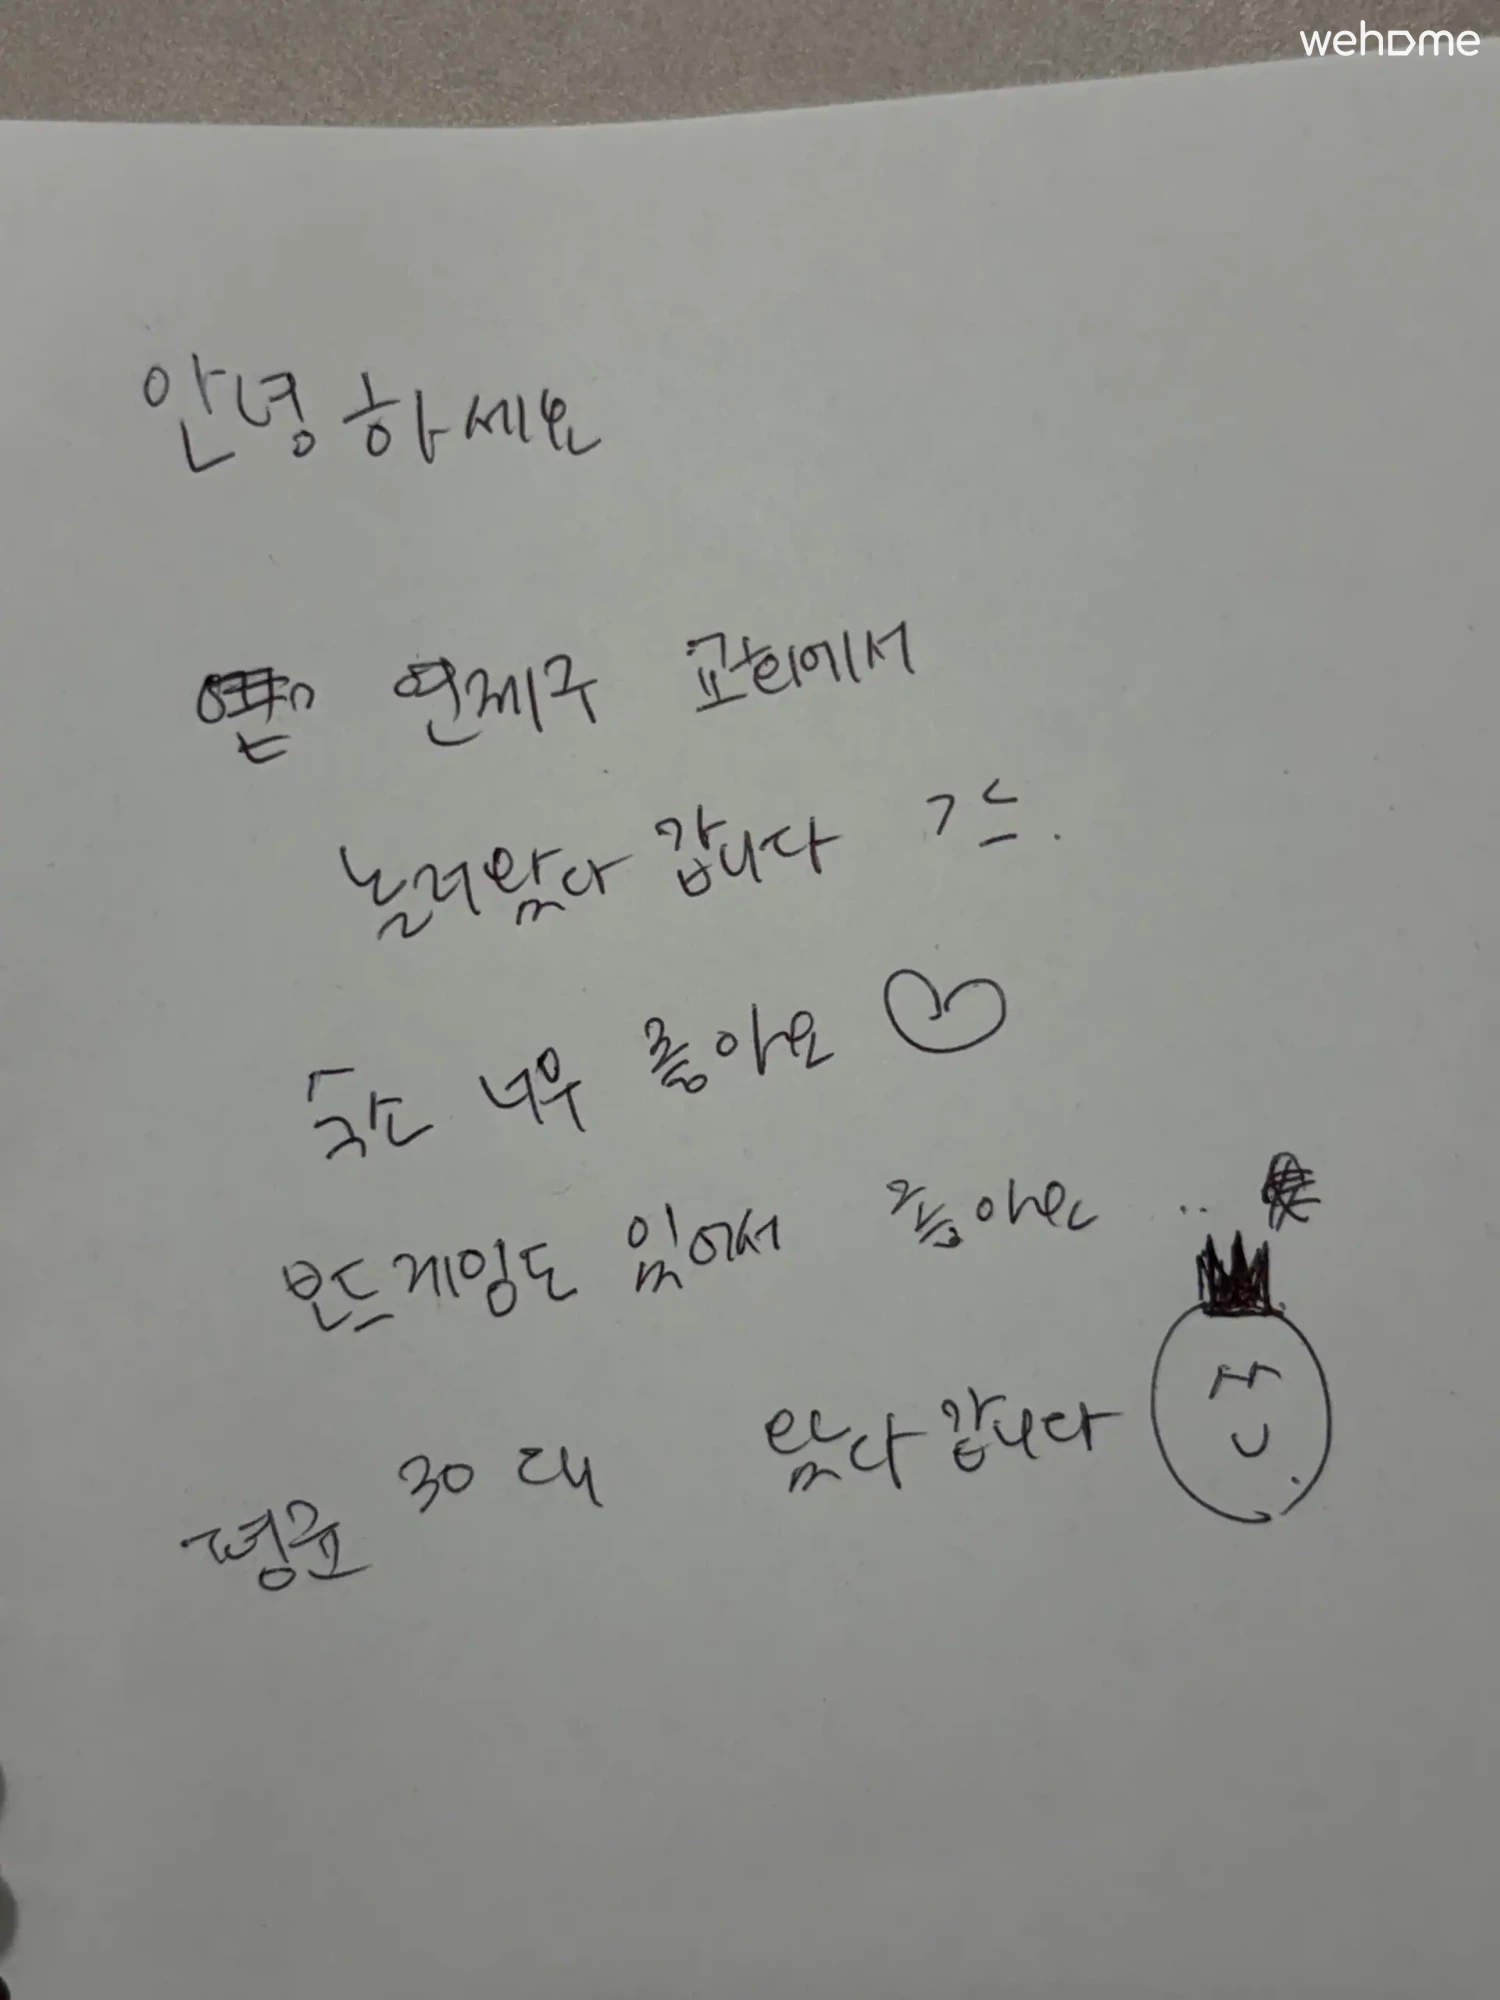 wehome
안녕하세요
연제구 교회에서
놀러왔다 갑니다 ㄱㅅ.
숙소 너무 좋아요
보드게임도 있어서 좋아요 ..
평균 30대 왔다갑니다